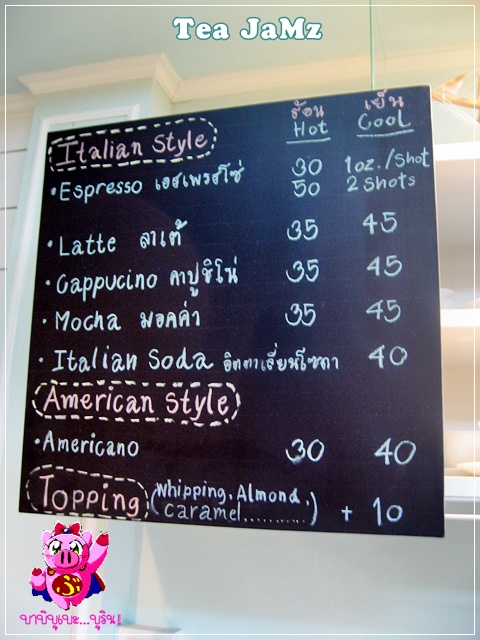 Tea JaMz
ร้อน เย็น
Hot Cool
Italian Style
• Espresso เอสเพรสโซ่ 30 1oz./Shot
50 2 Shots
• Latte ลาเต้ 35 45
• Cappucino คาปูชิโน่ 35 45
• Mocha มอคค่า 35 45
• Italian Soda อิตตาเลี่ยนโซดา 40
American Style
• Americano 30 40
Topping (Whipping, Almond, caramel............) + 10
บาบิบูเบะ...บุริน!